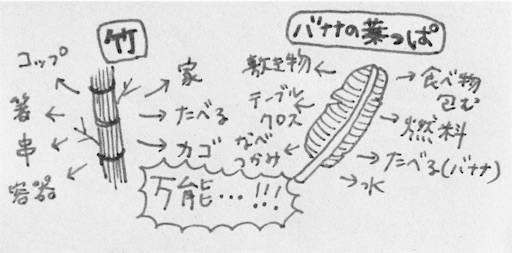 竹
コップ
箸
串
容器
家
たべる
カゴ
バナナの葉っぱ
敷き物
テーブル
クロス
なべ
つかみ
食べ物
包む
燃料
たべる(バナナ)
水
万能…!!!